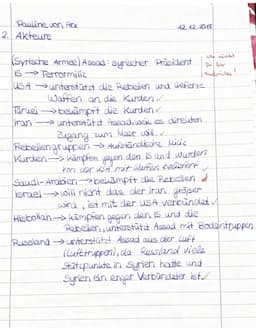 Pauline von Arx
12.12.2018
2. Akteure
(Syrische Armee) Assad: syrischer Präsident
IS → Terrormiliz
USA → unterstützt die Rebellen und lieferte
Waffen an die Kurden ✓
Türkei → bekämpft die Kurden ✓
Iran → unterstützt Assad, weil es direkten
Zugang zum Meer will. ✓
Rebellengruppen → Aufständische Miliz
Kurden → kämpfen gegen den IS und wurden
von der USA mit Waffen beliefert
Saudi-Arabien → bekämpft die Rebellen
Israel → will nicht das der Iran größer
wird, ist mit der USA verbündet ✓
Hisbollah → kämpfen gegen den IS und die
Rebellen, unterstützt Assad mit Bodentruppen
Russland → unterstützt Assad aus der Luft
(Lufttruppen), da Russland viele
Stützpunkte in Syrien hatte und
Syrien ein enger Verbündeter ist ✓